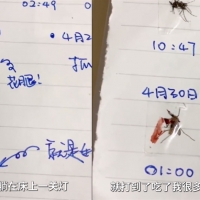 02:49
4月2
孤
花腿！
就是
躺在床上一关灯
10:47
4月30日
01:00
就打到了吃了我很多